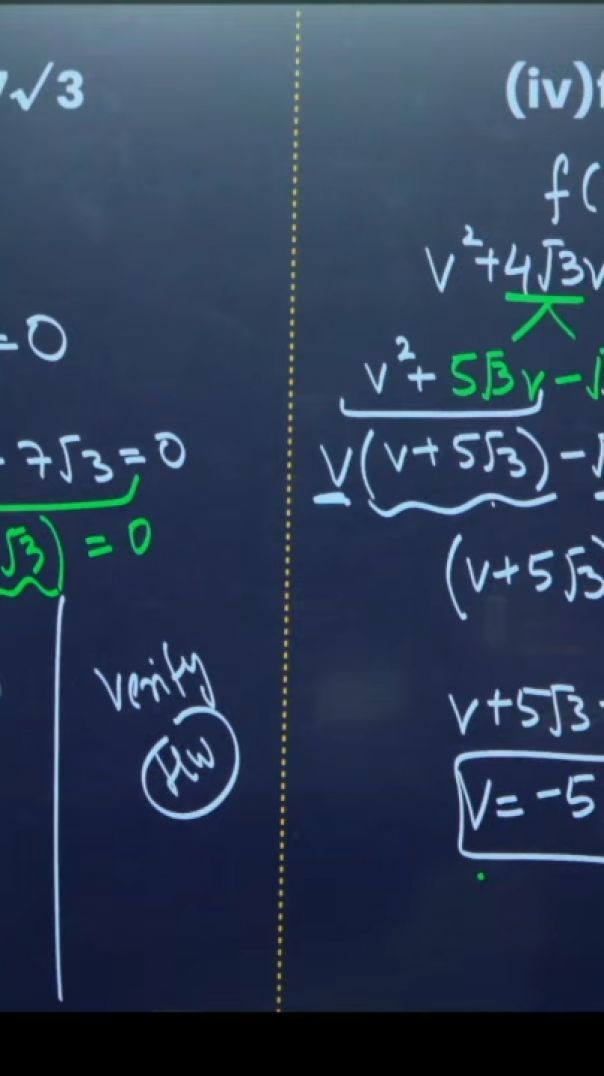 √3
= 0
- 7√3 = 0
√3) = 0
Verify
HW
(iv)
f(
v² + 4√3v
v² + 5√3v - √
v(v + 5√3) - √
(v + 5√3)
v + 5√3
v = -5